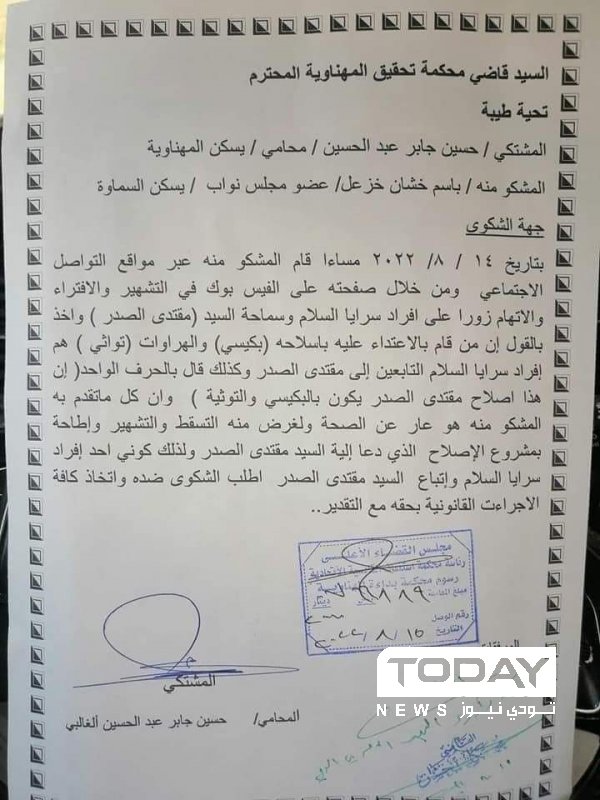 السيد قاضي محكمة تحقيق المهناوية المحترم
تحية طيبة
المشتكي / حسين جابر عبد الحسين / محامي / يسكن المهناوية
المشكو منه / باسم خشان خزعل/ عضو مجلس نواب / يسكن السماوة
جهة الشكوى
بتاريخ ١٤ / ٨/ ٢٠٢٢ مساءا قام المشكو منه عبر مواقع التواصل
الاجتماعي ومن خلال صفحته على الفيس بوك في التشهير والافتراء
والاتهام زورا على افراد سرايا السلام وسماحة السيد (مقتدى الصدر ) واخذ
بالقول إن من قام بالاعتداء عليه باسلاحه (بكيسي) والهراوات (تواثي ) هم
إفراد سرايا السلام التابعين إلى مقتدى الصدر وكذلك قال بالحرف الواحد( إن
هذا اصلاح مقتدى الصدر يكون بالبكيسي و التوثية ) وان كل ماتقدم به
المشكو منه هو عار عن الصحة ولغرض منه التسقط والتشهير وإطاحة
بمشروع الإصلاح الذي دعا إلية السيد مقتدى الصدر ولذلك كوني احد إفراد
سرايا السلام وإتباع السيد مقتدى الصدر اطلب الشكوى ضده واتخاذ كافة
الاجراءت القانونية بحقه مع التقدير..
مجلس القضاء الأعلى
رئاسة محكمة الاتحادية
رسوم محكمة بداءة
مبلغ دينار
رقم الوصل
التاريخ ١٥ / ٨ / ٢٠٢٢
المشتكي
المحامي/ حسين جابر عبد الحسين ألغالبي
TODAY
NEWS تودي نيوز